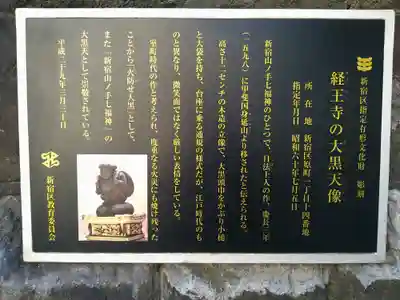 新宿区指定有形文化財 彫刻
経王寺の大黒天像
所在地 新宿区原町一丁目十四番地
指定年月日 昭和六十年七月五日
新宿山ノ手七福神のひとつで、日法上人の作、慶長三年
(一五九八)に甲斐国身延山より移されたと伝えられる。
高さ十二センチの木造の立像で、大黒頭巾をかぶり小槌
と大袋を持ち、台座に乗る通規の様式だが、江戸時代のも
のと異なり、微笑面ではなく厳しい表情をしている。
室町時代の作と考えられ、度重なる火災にも焼け残った
ことから「火防せ大黒」として、
また「新宿山ノ手七福神」の
大黒天として崇敬されている。
平成二十九年三月三十日
新宿区教育委員会